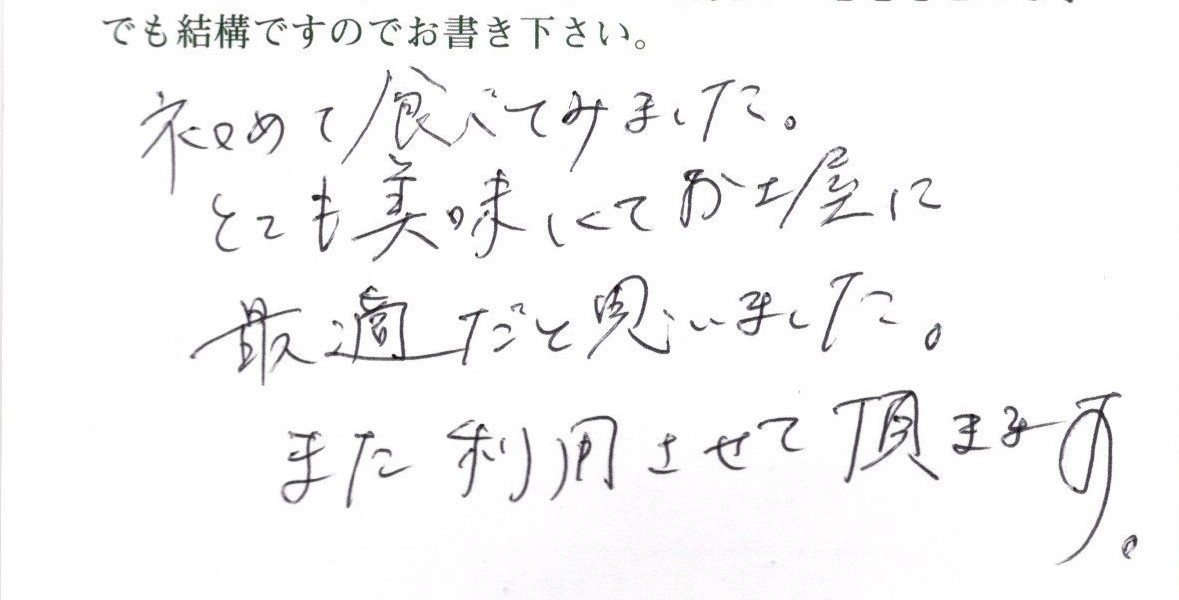 でも結構ですのでお書き下さい。
初めて食べてみました。
とても美味しくてお土産に
最適だと思いました。
また利用させて頂きます。